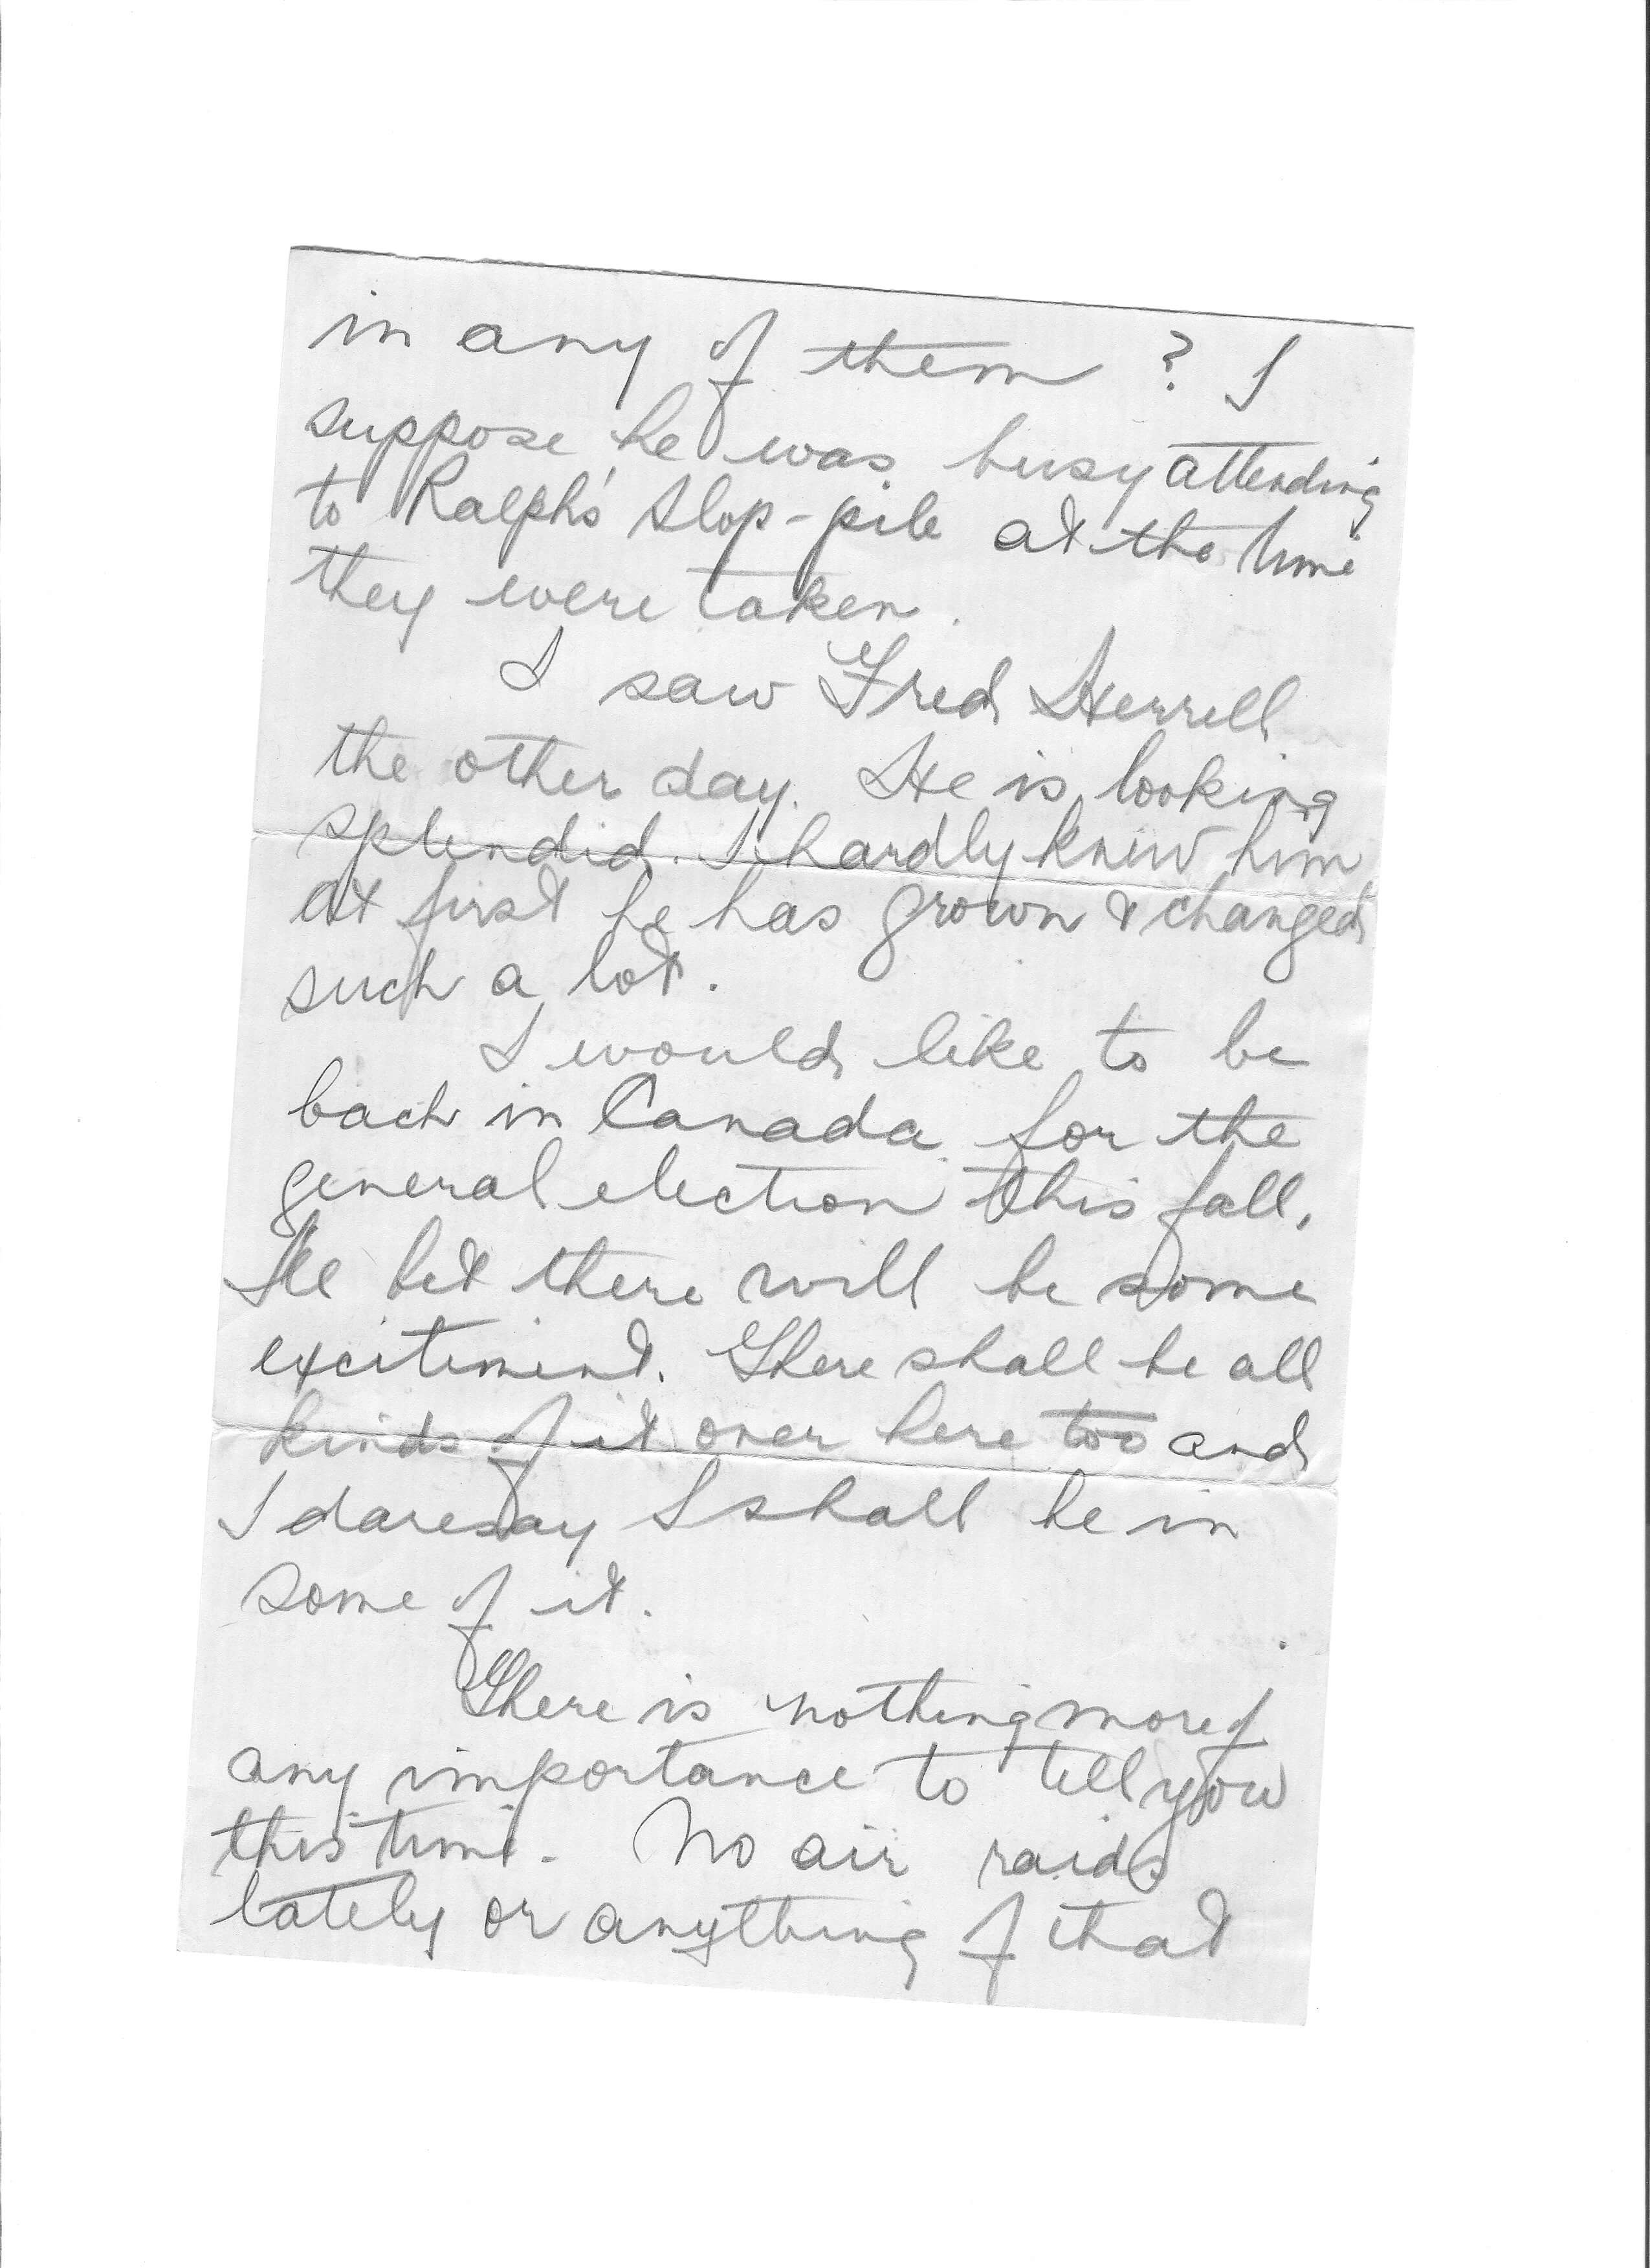 in any of them ? I
suppose he was busy attending
to Ralph's slop-pile at the time
they were taken.
I saw Fred Herrell
the other day. He is looking
splendid. I hardly knew him
at first he has grown & changed
such a lot.
I would like to be
back in Canada for the
general election this fall.
I'll bet there will be some
excitement. There shall be all
kinds of it over here too and
I daresay I shall be in
some of it.
There is nothing more of
any importance to tell you
this time. No air raids
lately or anything of that